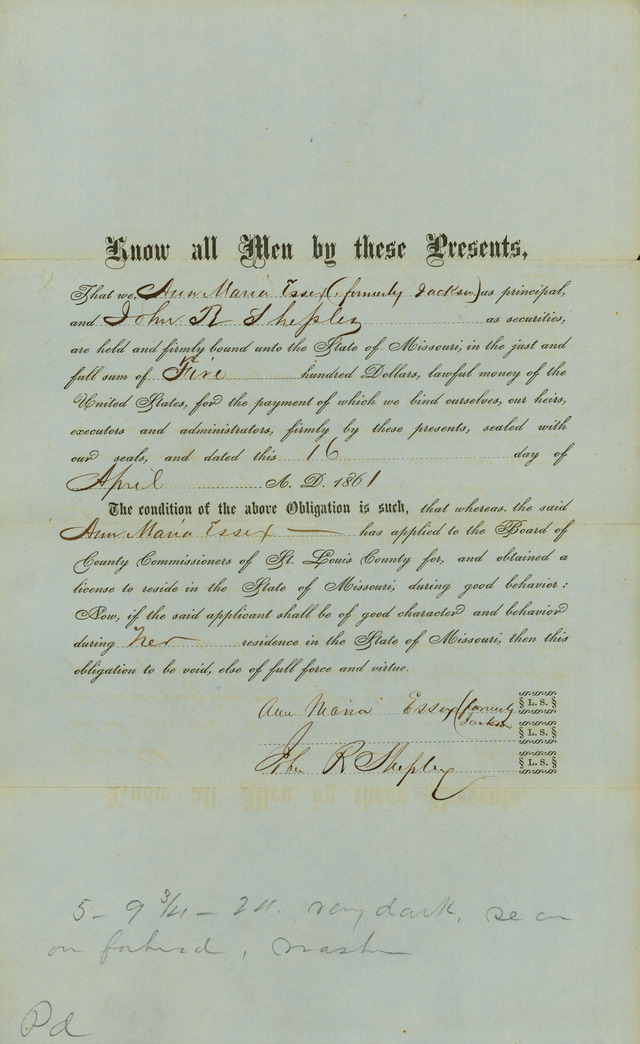 Know all Men by these Presents,
That we, Ann Maria Essex (formerly Jackson) as principal,
and John R Shepley as securities,
are held and firmly bound unto the State of Missouri, in the just and
full sum of Five hundred Dollars, lawful money of the
United States, for the payment of which we bind ourselves, our heirs,
executors and administrators, firmly by these presents, sealed with
our seals, and dated this 16 day of
April A. D. 1861
The condition of the above Obligation is such, that whereas the said
Ann Maria Essex — has applied to the Board of
County Commissioners of St. Louis County for, and obtained a
license to reside in the State of Missouri, during good behavior:
Now, if the said applicant shall be of good character and behavior
during her residence in the State of Missouri, then this
obligation to be void, else of full force and virtue.
Ann Maria Essex (formerly Jackson § L. S. §
§ L. S. §
John R Shepley § L. S. §
5 - 9 3/4 - 24. very dark,
on forhead, washer
Pd